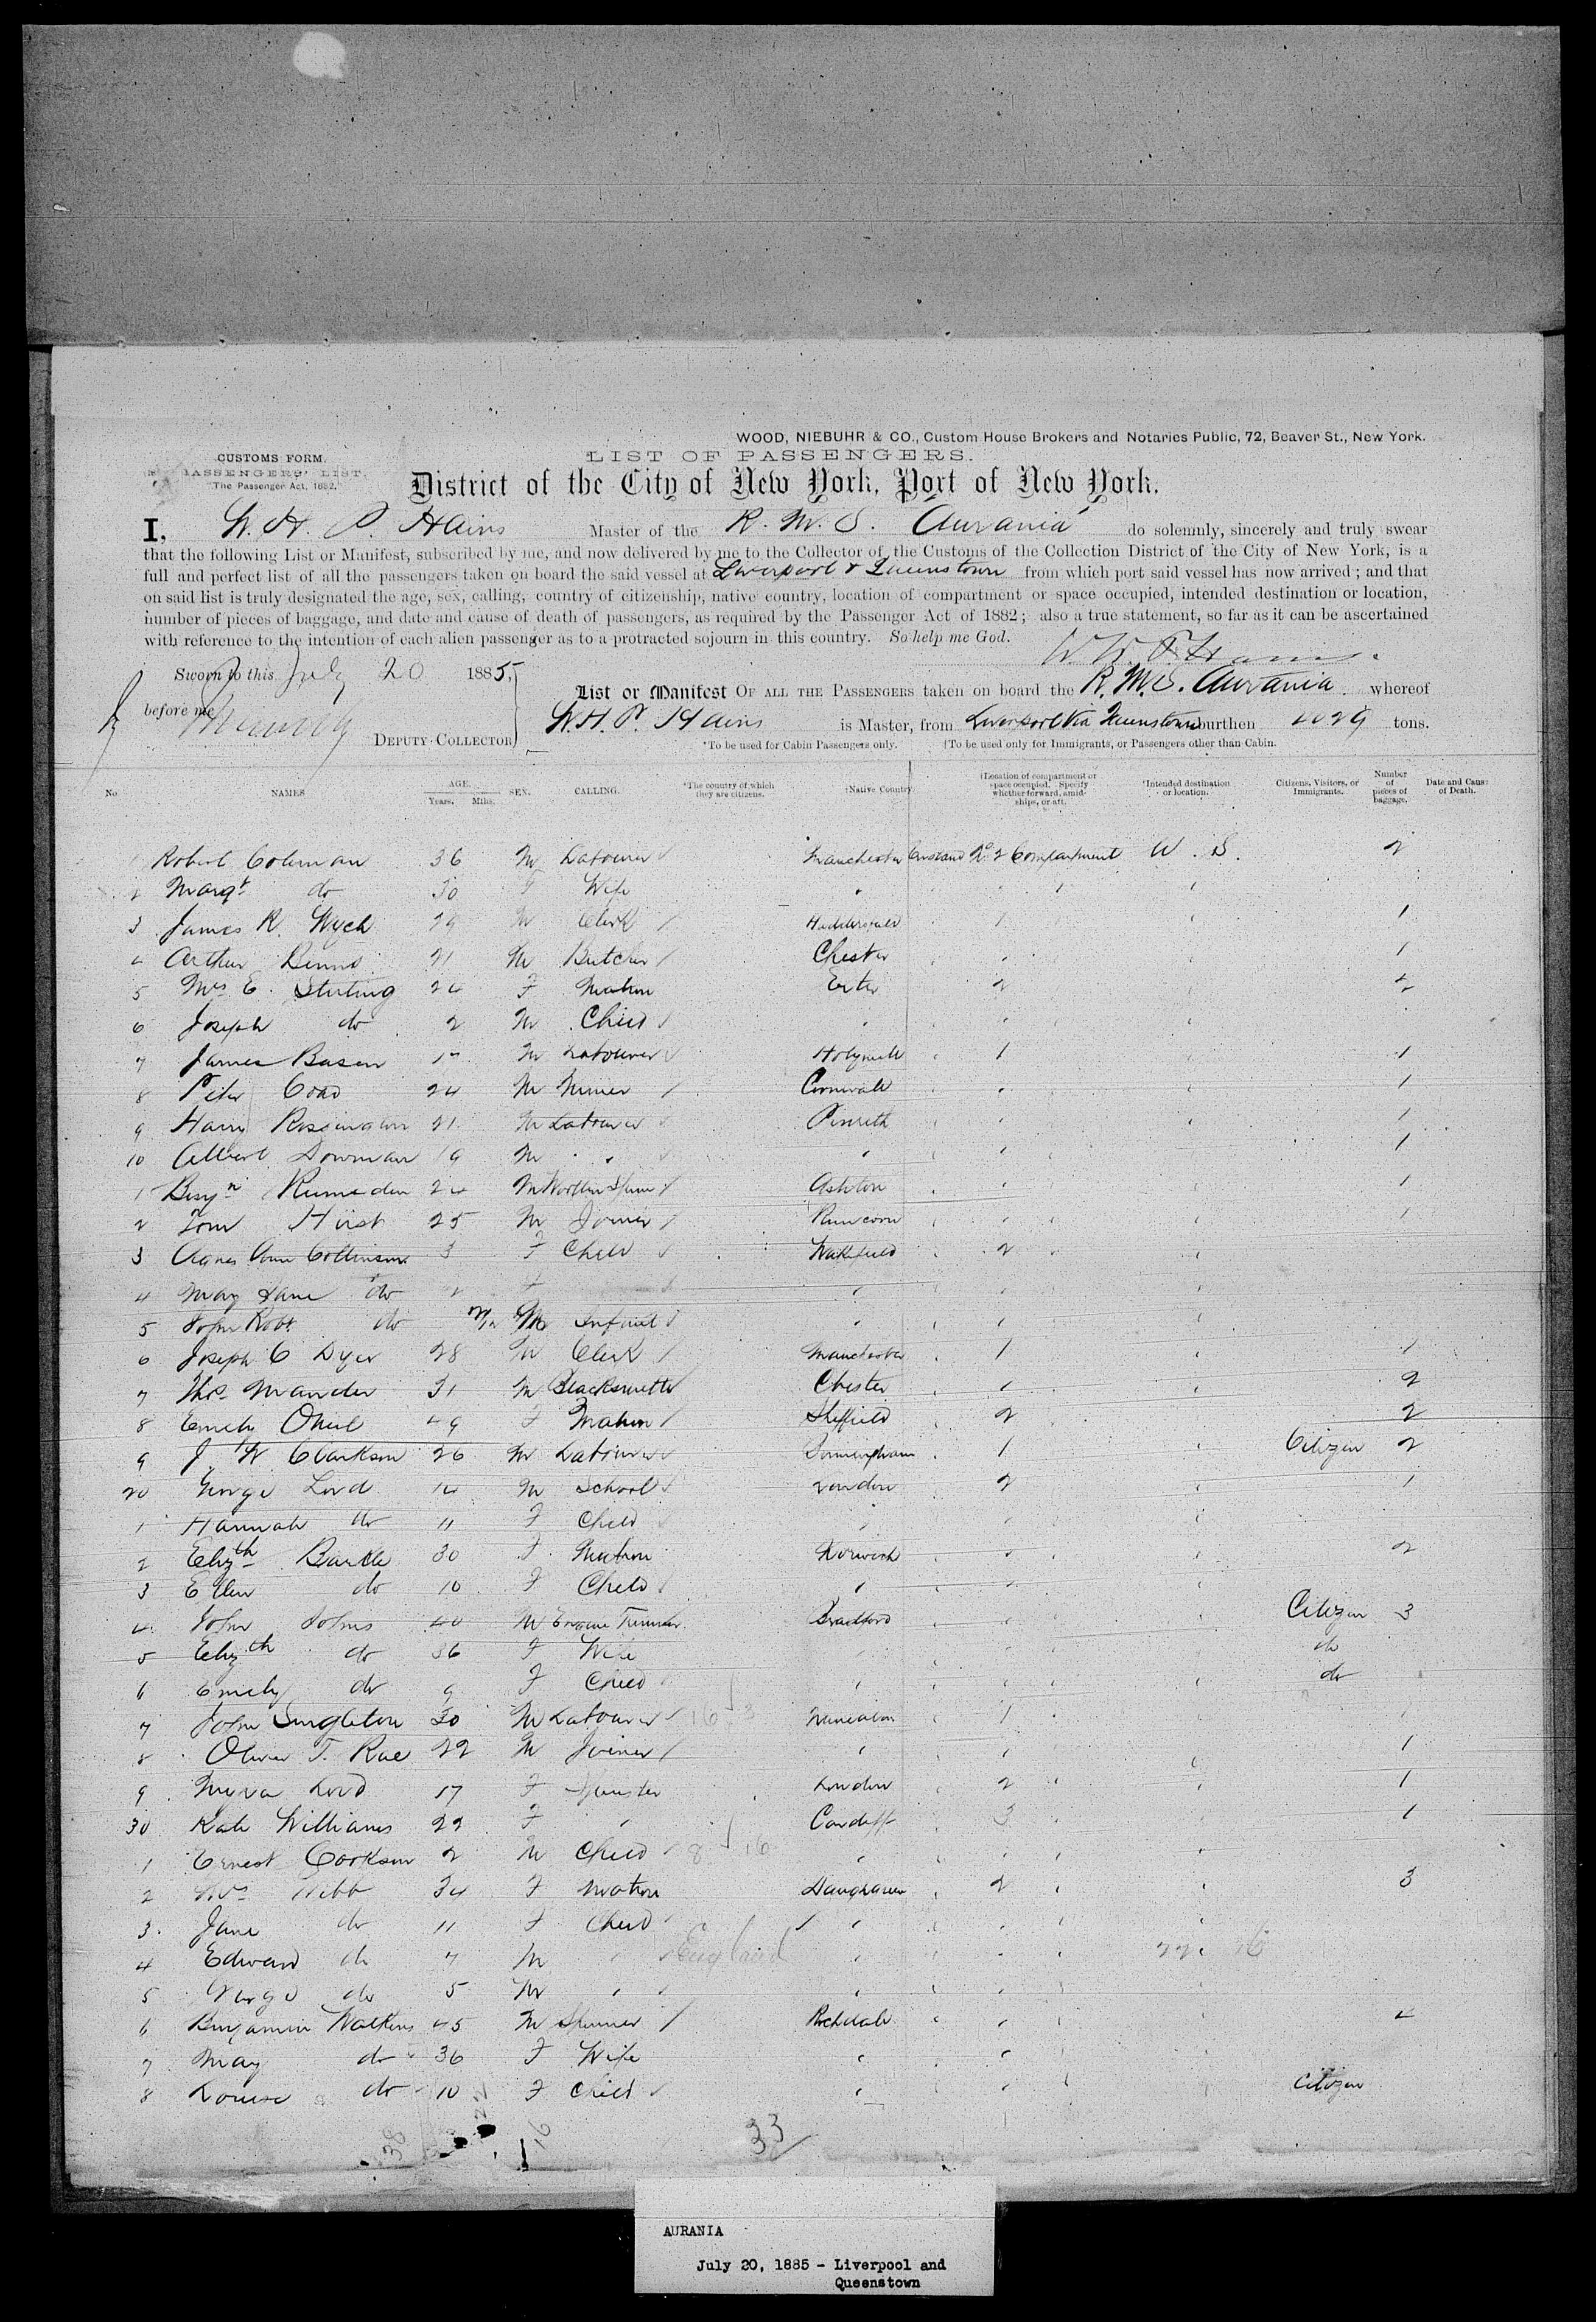 WOOD, NIEBUHR & CO., Custom House Brokers and Notaries Public, 72, Beaver St., New York.
CUSTOMS FORM.
PASSENGERS' LIST.
"The Passenger Act, 1882."
LIST OF PASSENGERS.
District of the City of New York, Port of New York.
I, W. H. P. Hains Master of the R. M. S. Aurania do solemnly, sincerely and truly swear
that the following List or Manifest, subscribed by me, and now delivered by me to the Collector of the Customs of the Collection District of the City of New York, is a
full and perfect list of all the passengers taken on board the said vessel at Liverpool & Queenstown from which port said vessel has now arrived; and that
on said list is truly designated the age, sex, calling, country of citizenship, native country, location of compartment or space occupied, intended destination or location,
number of pieces of baggage, and date and cause of death of passengers, as required by the Passenger Act of 1882; also a true statement, so far as it can be ascertained
with reference to the intention of each alien passenger as to a protracted sojourn in this country. So help me God.
Sworn to this July 20 1885.
before me
DEPUTY COLLECTOR
List or Manifest OF ALL THE PASSENGERS taken on board the R. M. S. Aurania whereof
W. H. P. Hains is Master, from Liverpool Via Queenstown burthen 4029 tons.
*To be used for Cabin Passengers only. †To be used only for Immigrants, or Passengers other than Cabin.
No. NAMES AGE. Years. Mths. SEX. CALLING. *The country of which they are citizens. †Native Country. †Location of compartment or space occupied. Specify whether forward, amidships, or aft. †Intended destination or location. Citizens, Visitors, or Immigrants. Number of pieces of baggage. Date and Cause of Death.
1 Robert Coleman 36 M Labourer Manchester No 2 Compartment U. S. 2
2 Margt do 30 F Wife "
3 James R. Wych 29 M Clerk Huddersfield 1 1
4 Arthur Binns 21 M Butcher Chester " 1
5 Mrs E. 24 F Matron Exeter 2 2
6 Joseph do 2 M Child "
7 James Bason M Labourer Holywell 1 1
8 Peter Coad 24 M Miner Cornwall " 1
9 Harry 21 M Labourer Penrith " 1
10 Albert Dowman 19 M " " 1
1 Benjn 24 M Woollen Ashton " 1
2 Tom Hirst 25 M Joiner Runcorn " 1
3 Agnes Ann Collinson 3 F Child Wakefield 2
4 May Jane do F "
5 John Robt do M Infant "
6 Joseph C Dyer 28 M Clerk Manchester 1 1
7 Thos Mander 31 M Blacksmith Chester " 2
8 Emily Oneil 49 F Matron Sheffield 2 2
9 J. W Clarkson 26 M Labourer Birmingham 1 Citizen 2
20 George Lord 14 M School London 2 1
1 Hannah do 11 F Child "
2 Elizth 30 F Matron Norwich " 2
3 Ellen do 10 F Child "
4 John Johns 40 M Bradford " Citizen 3
5 Elizth do 36 F Wife " do
6 Emely do 9 F Child " do
7 John Singleton 30 M Labourer Nuneaton 1 1
8 Oliver T. Rae 22 M Joiner " 1
9 Lord 17 F Spinster London 2 1
30 Kate Williams 22 F " Cardiff 3 1
1 Ernest 2 M Child "
2 Mrs Webb 34 F Matron 2 3
3 Jane do 11 F Child "
4 Edward do 7 M " England "
5 George do 5 M " "
6 Benjamin Watkins 45 M Spinner Rochdale " 4
7 May do 36 F Wife "
8 Louise do 10 F Child " Citizen
33
AURANIA
July 20, 1885 - Liverpool and
Queenstown